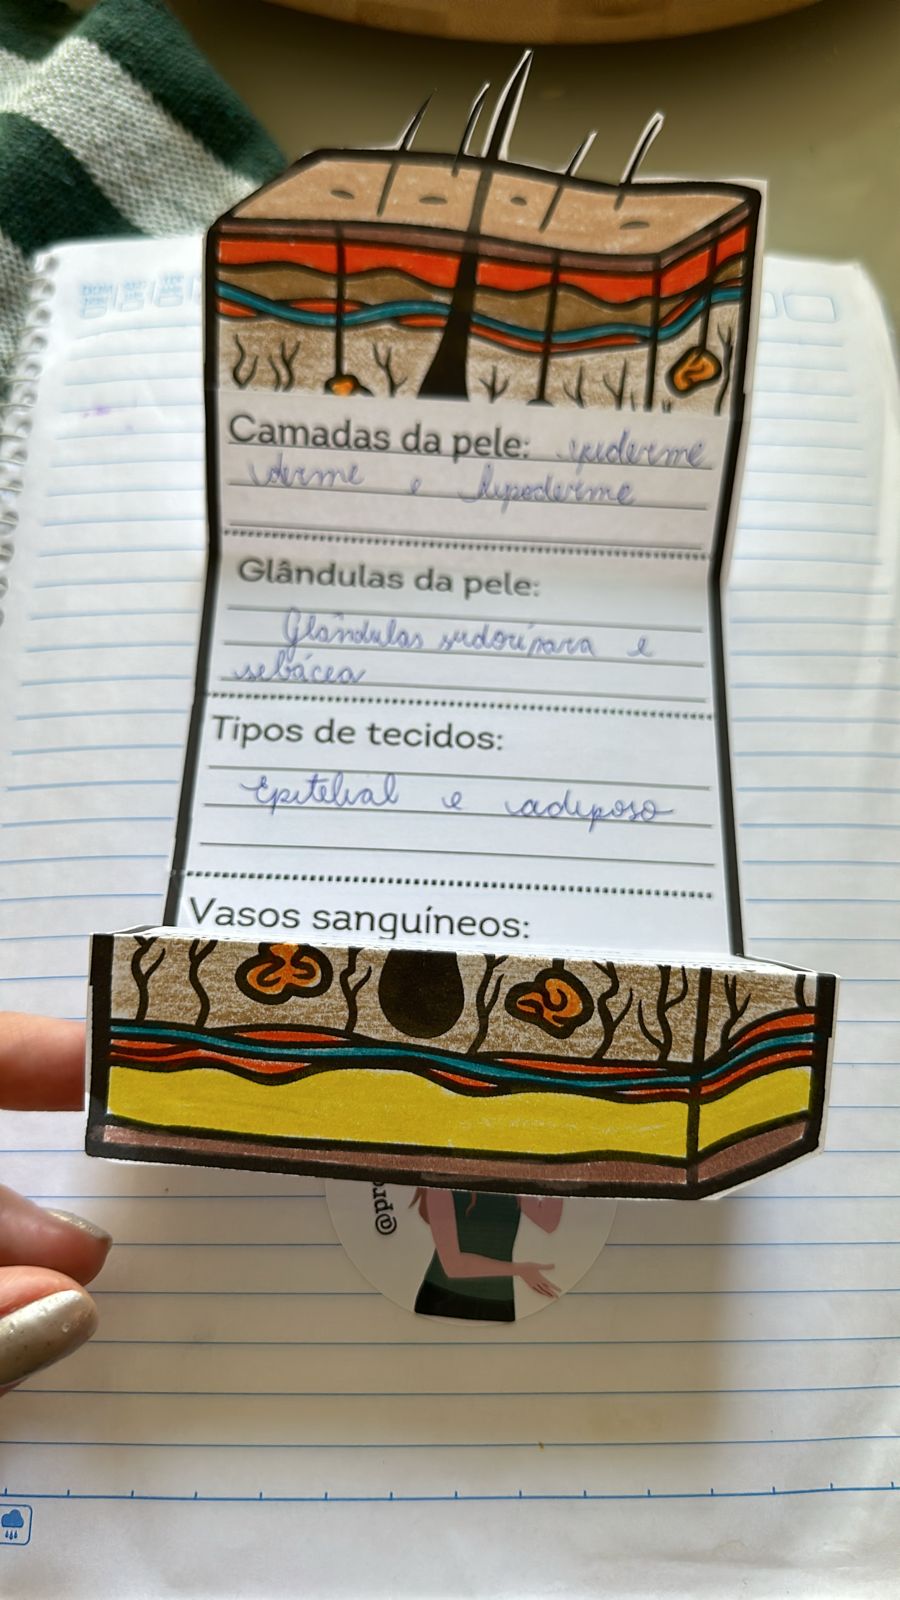 Camadas da pele: epiderme
derme e hipoderme
Glândulas da pele:
Glândulas sudorípara e
sebácea
Tipos de tecidos:
Epitelial e adiposo
Vasos sanguíneos:
@pro